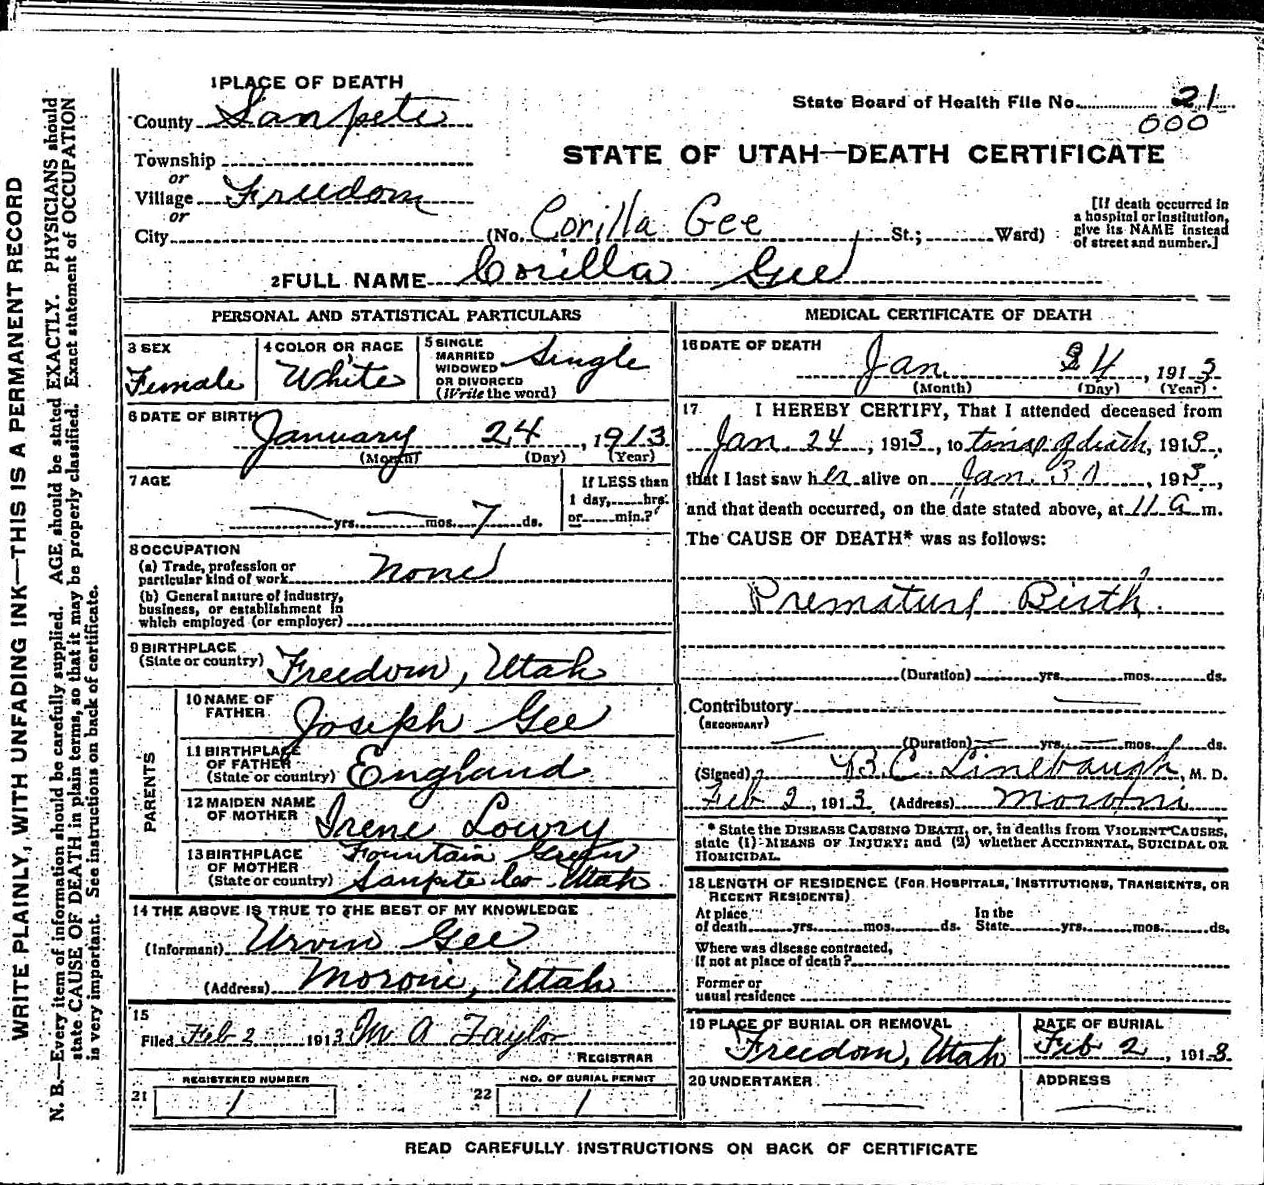 1 PLACE OF DEATH
County Sanpete
Township
or
Village Freedom
or
City (No. Corilla Gee St.; Ward)
State Board of Health File No. 21
000
STATE OF UTAH—DEATH CERTIFICATE
[If death occurred in
a hospital or institution,
give its NAME instead
of street and number.]
2 FULL NAME Corilla Gee
PERSONAL AND STATISTICAL PARTICULARS
3 SEX
Female
4 COLOR OR RACE
White
5 SINGLE
MARRIED
WIDOWED
OR DIVORCED
(Write the word)
Single
6 DATE OF BIRTH
January 24, 1913
(Month) (Day) (Year)
7 AGE
yrs. mos. 7 ds.
If LESS than
1 day, hrs.
or min.?
8 OCCUPATION
(a) Trade, profession or
particular kind of work None
(b) General nature of industry,
business, or establishment in
which employed (or employer)
9 BIRTHPLACE
(State or country) Freedom, Utah
PARENTS
10 NAME OF
FATHER Joseph Gee
11 BIRTHPLACE
OF FATHER
(State or country) England
12 MAIDEN NAME
OF MOTHER Irene Lowry
13 BIRTHPLACE
OF MOTHER
(State or country) Fountain Green
Sanpete Co Utah
14 THE ABOVE IS TRUE TO THE BEST OF MY KNOWLEDGE
(Informant) Urvin Gee
(Address) Moroni, Utah
15
Filed Feb 2 1913 M A Taylor
REGISTRAR
REGISTERED NUMBER
21 1
NO. OF BURIAL PERMIT
22 1
MEDICAL CERTIFICATE OF DEATH
16 DATE OF DEATH
Jan 24, 1913
(Month) (Day) (Year)
17 I HEREBY CERTIFY, That I attended deceased from
Jan 24, 1913, to time of death, 1913,
that I last saw her alive on Jan. 30, 1913,
and that death occurred, on the date stated above, at 11 a m.
The CAUSE OF DEATH* was as follows:
Premature Birth
(Duration) yrs. mos. ds.
Contributory
(SECONDARY)
(Duration) yrs. mos. ds.
(Signed) B C Linebaugh, M. D.
Feb 2, 1913 (Address) Moroni
* State the DISEASE CAUSING DEATH, or, in deaths from VIOLENT CAUSES,
state (1) MEANS OF INJURY; and (2) whether ACCIDENTAL, SUICIDAL OR
HOMICIDAL.
18 LENGTH OF RESIDENCE (FOR HOSPITALS, INSTITUTIONS, TRANSIENTS, OR
RECENT RESIDENTS)
At place
of death yrs. mos. ds.
In the
State yrs. mos. ds.
Where was disease contracted,
if not at place of death?
Former or
usual residence
19 PLACE OF BURIAL OR REMOVAL
Freedom, Utah
DATE OF BURIAL
Feb 2, 1913
20 UNDERTAKER
ADDRESS
READ CAREFULLY INSTRUCTIONS ON BACK OF CERTIFICATE
WRITE PLAINLY, WITH UNFADING INK—THIS IS A PERMANENT RECORD
N. B.—Every item of information should be carefully supplied. AGE should be stated EXACTLY. PHYSICIANS should
state CAUSE OF DEATH in plain terms, so that it may be properly classified. Exact statement of OCCUPATION
is very important. See instructions on back of certificate.